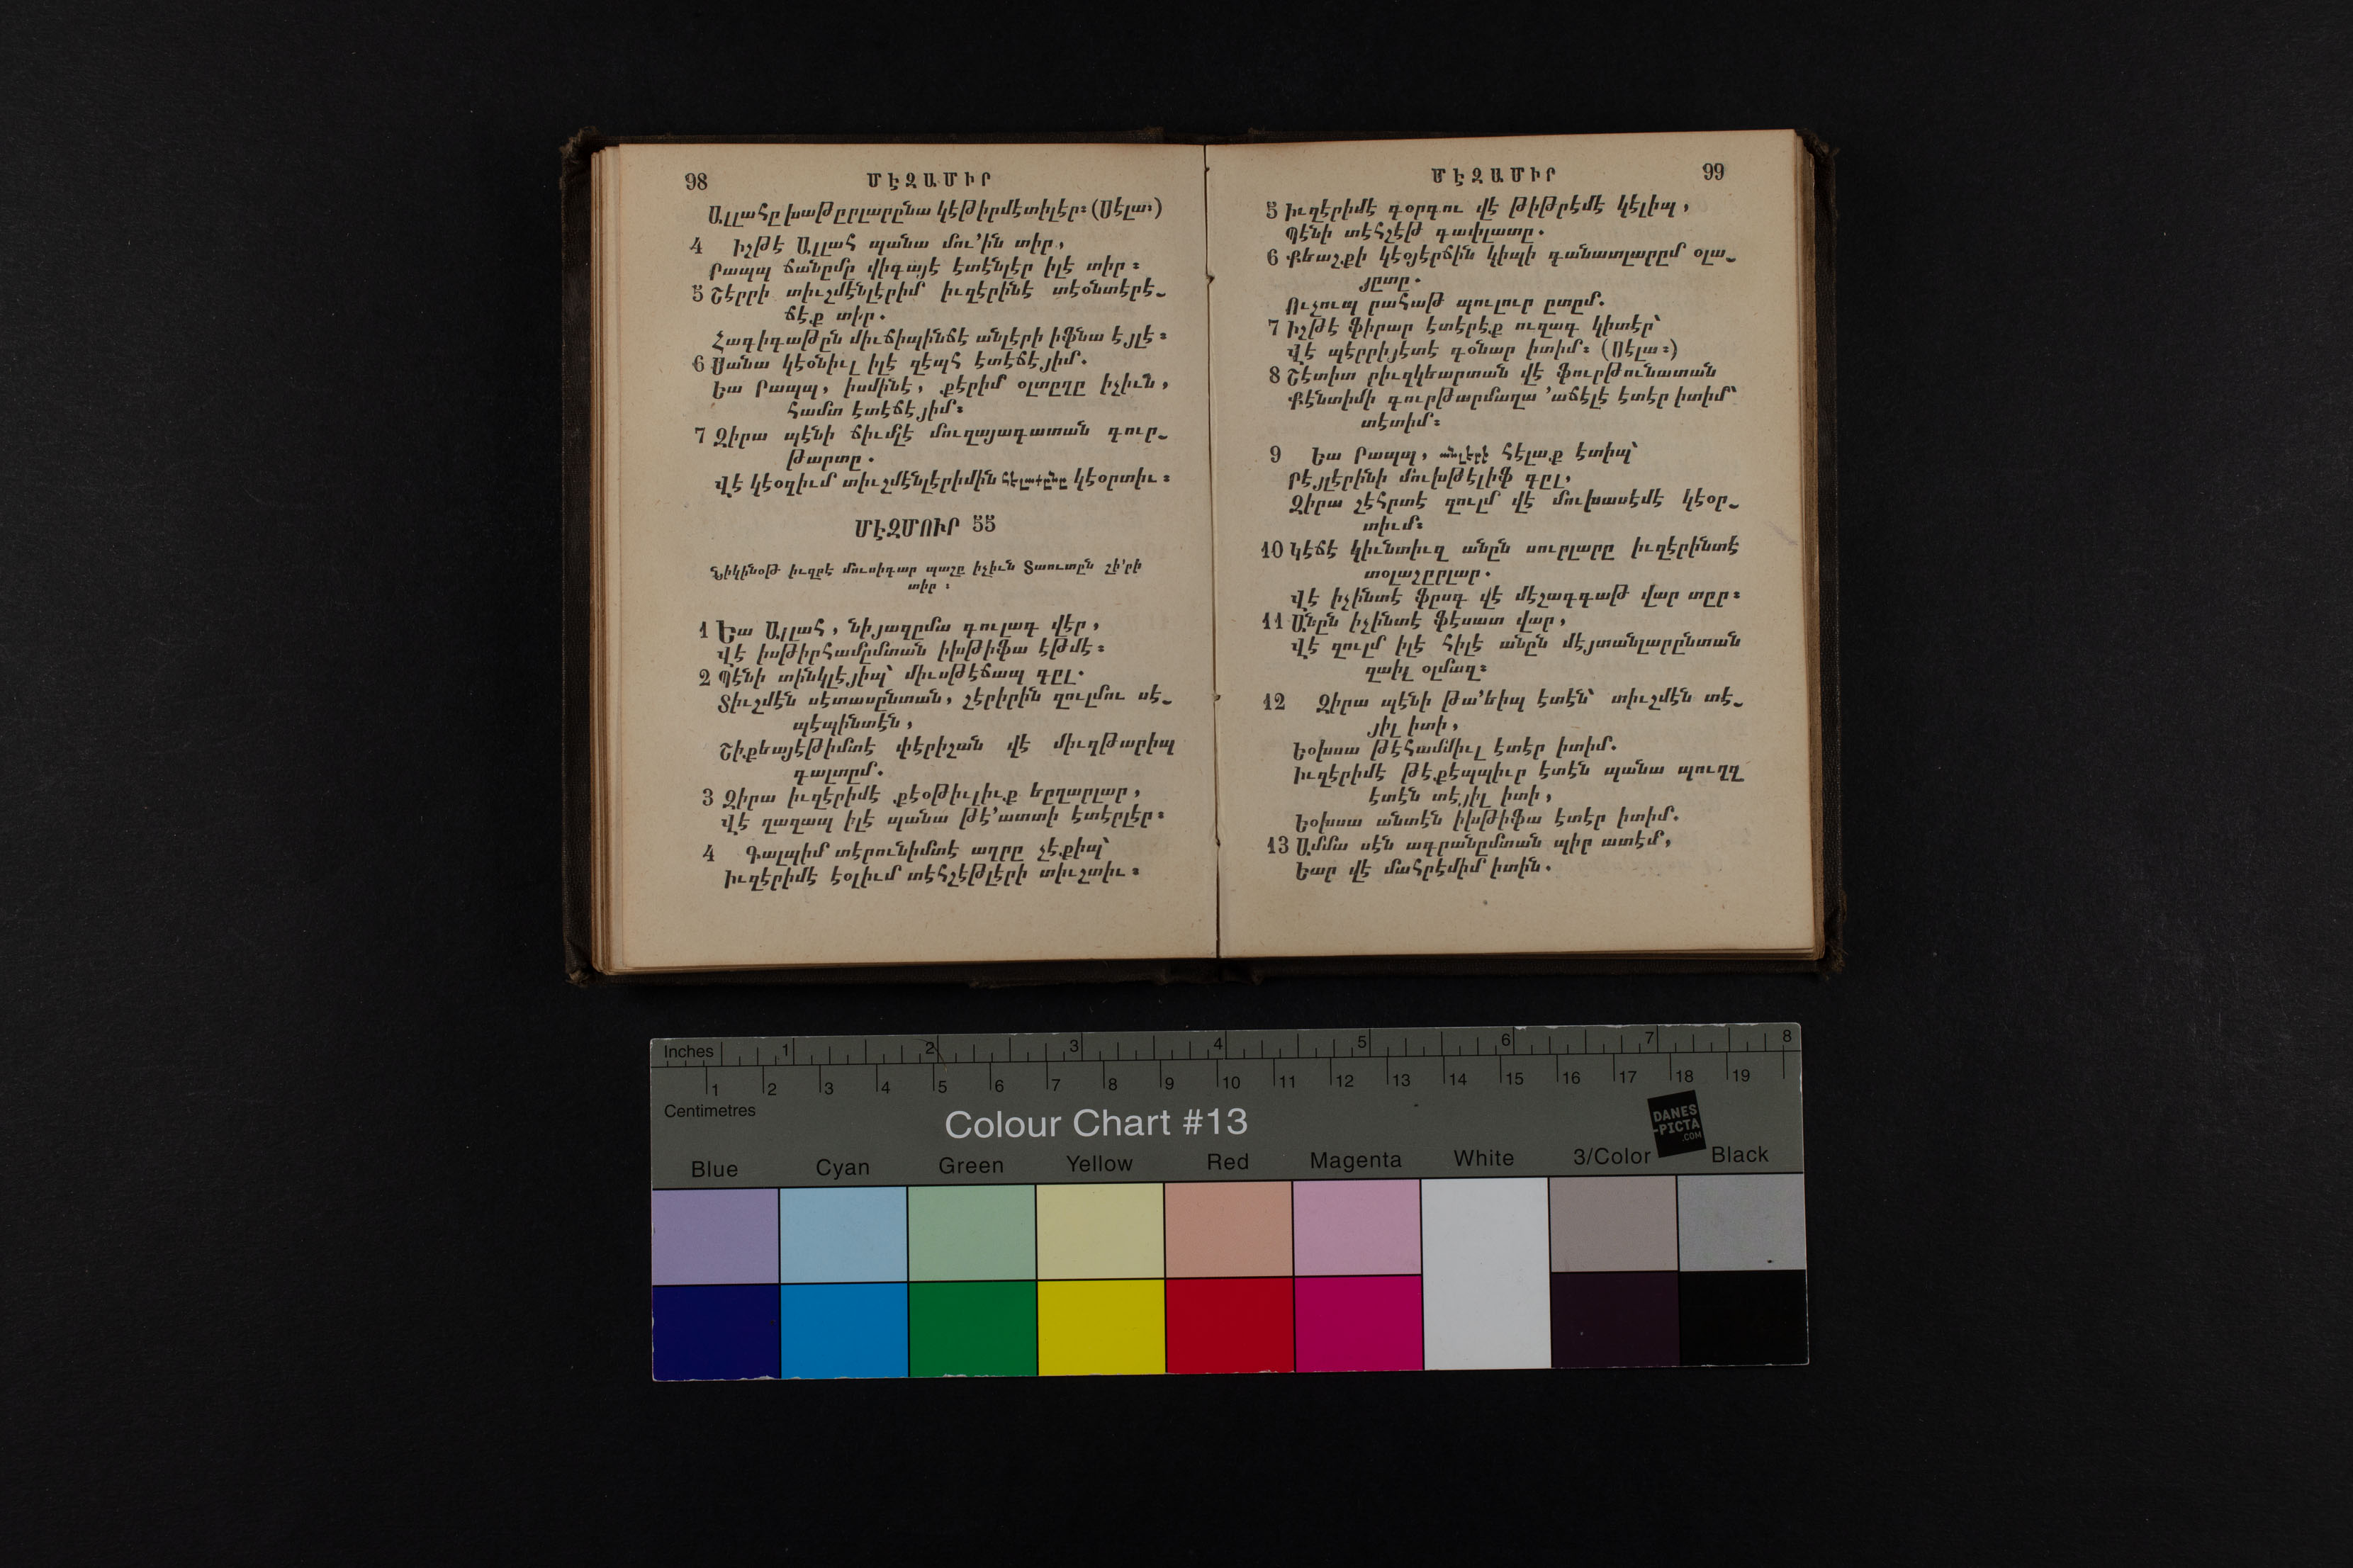 98 ՄԷԶԱՄԻՐ
Ալլահը խաթըրլարընա կէթիրմէտիլէր։ (Սէլա։)
4 Իշթէ Ալլահ պանա մու՛ին տիր,
Րապպ ճանըմը վիգայէ էտէնլէր իլէ տիր։
5 Շէրրի տիւշմէնլէրիմ իւզէրինէ տէօնտէրէ֊
ճէք տիր.
Հագիգաթըն միւճիպինճէ անլէրի իֆնա էյլէ։
6 Սանա կէօնիւլ իլէ զէպհ էտէճէյիմ.
Եա Րապպ, իսմինէ, քէրիմ օլտըղը իչիւն,
համտ էտէճէյիմ։
7 Զիրա պէնի ճիւմլէ մուզայագատան գուր֊
թարտը.
Վէ կէօզիւմ տիւշմէնլէրիմին հելաքընը կէօրտիւ։
ՄԷԶՄՈՒՐ 55
Նիկինօթ իւզրէ մուսիգար պաշը իչիւն Տաուտըն շի՛րի
տիր։
1 Եա Ալլահ, նիյազըմա գուլագ վէր,
Վէ իսթիրհամըմտան իխթիֆա էթմէ։
2 Պէնի տինկլէյիպ՝ միւսթէճապ գըլ.
Տիւշմէն սէտասընտան, շէրիրին զուլմու սէ֊
պէպինտէն,
Շիքեայէթիմտէ փէրիշան վէ միւզթարիպ
գալտըմ.
3 Զիրա իւզէրիմէ քէօթիւլիւք եըղարլար,
Վէ ղազապ իլէ պանա թէ՛ատտի էտէրլէր։
4 Գալպիմ տէրունիմտէ աղրը չէքիպ՝
Իւզէրիմէ էօլիւմ տէհշէթլէրի տիւշտիւ։
ՄԷԶԱՄԻՐ 99
5 Իւզէրիմէ գօրգու վէ թիթրէմէ կէլիպ,
Պէնի տէհշէթ գափլատը.
6 Քեաշքի կէօյէրճին կիպի գանատլարըմ օլա֊
յըտը.
Ուչուպ րահաթ պուլուր ըտըմ.
7 Իշթէ ֆիրար էտէրէք ուզագ կիտէր՝
Վէ պէրրիյէտէ գօնար իտիմ։ (Սէլա։)
8 Շէտիտ րիւզկեարտան վէ ֆուրթունատան
Քէնտիմի գուրթարմաղա ՛աճէլէ էտէր իտիմ՝
տէտիմ։
9 Եա Րապպ, անլէրի հէլաք էտիպ՝
Րէյլէրինի մուխթէլիֆ գըլ,
Զիրա շէհրտէ զուլմ վէ մուխասէմէ կէօր֊
տիւմ։
10 Կէճէ կիւնտիւզ անըն սուրլարը իւզէրինտէ
տօլաշըրլար.
Վէ իչինտէ ֆըսգ վէ մէշագգաթ վար տըր։
11 Անըն իչինտէ ֆէսատ վար,
Վէ զուլմ իլէ հիլէ անըն մէյտանլարընտան
զաիլ օլմազ։
12 Զիրա պէնի թա՛եիպ էտէն՝ տիւշմէն տէ֊
յիլ իտի,
Եօխսա թէհամմիւլ էտէր իտիմ.
Իւզէրիմէ թէքէպպիւր էտէն պանա պուղզ
էտէն տէյիլ իտի,
Եօխսա անտէն իխթիֆա էտէր իտիմ.
13 Ամմա սէն ագրանըմտան պիր ատէմ,
Եար վէ մահրէմիմ իտին.
Inches 1 2 3 4 5 6 7 8
1 2 3 4 5 6 7 8 9 10 11 12 13 14 15 16 17 18 19
Centimetres
Colour Chart #13
DANES
-PICTA
.COM
Blue Cyan Green Yellow Red Magenta White 3/Color Black